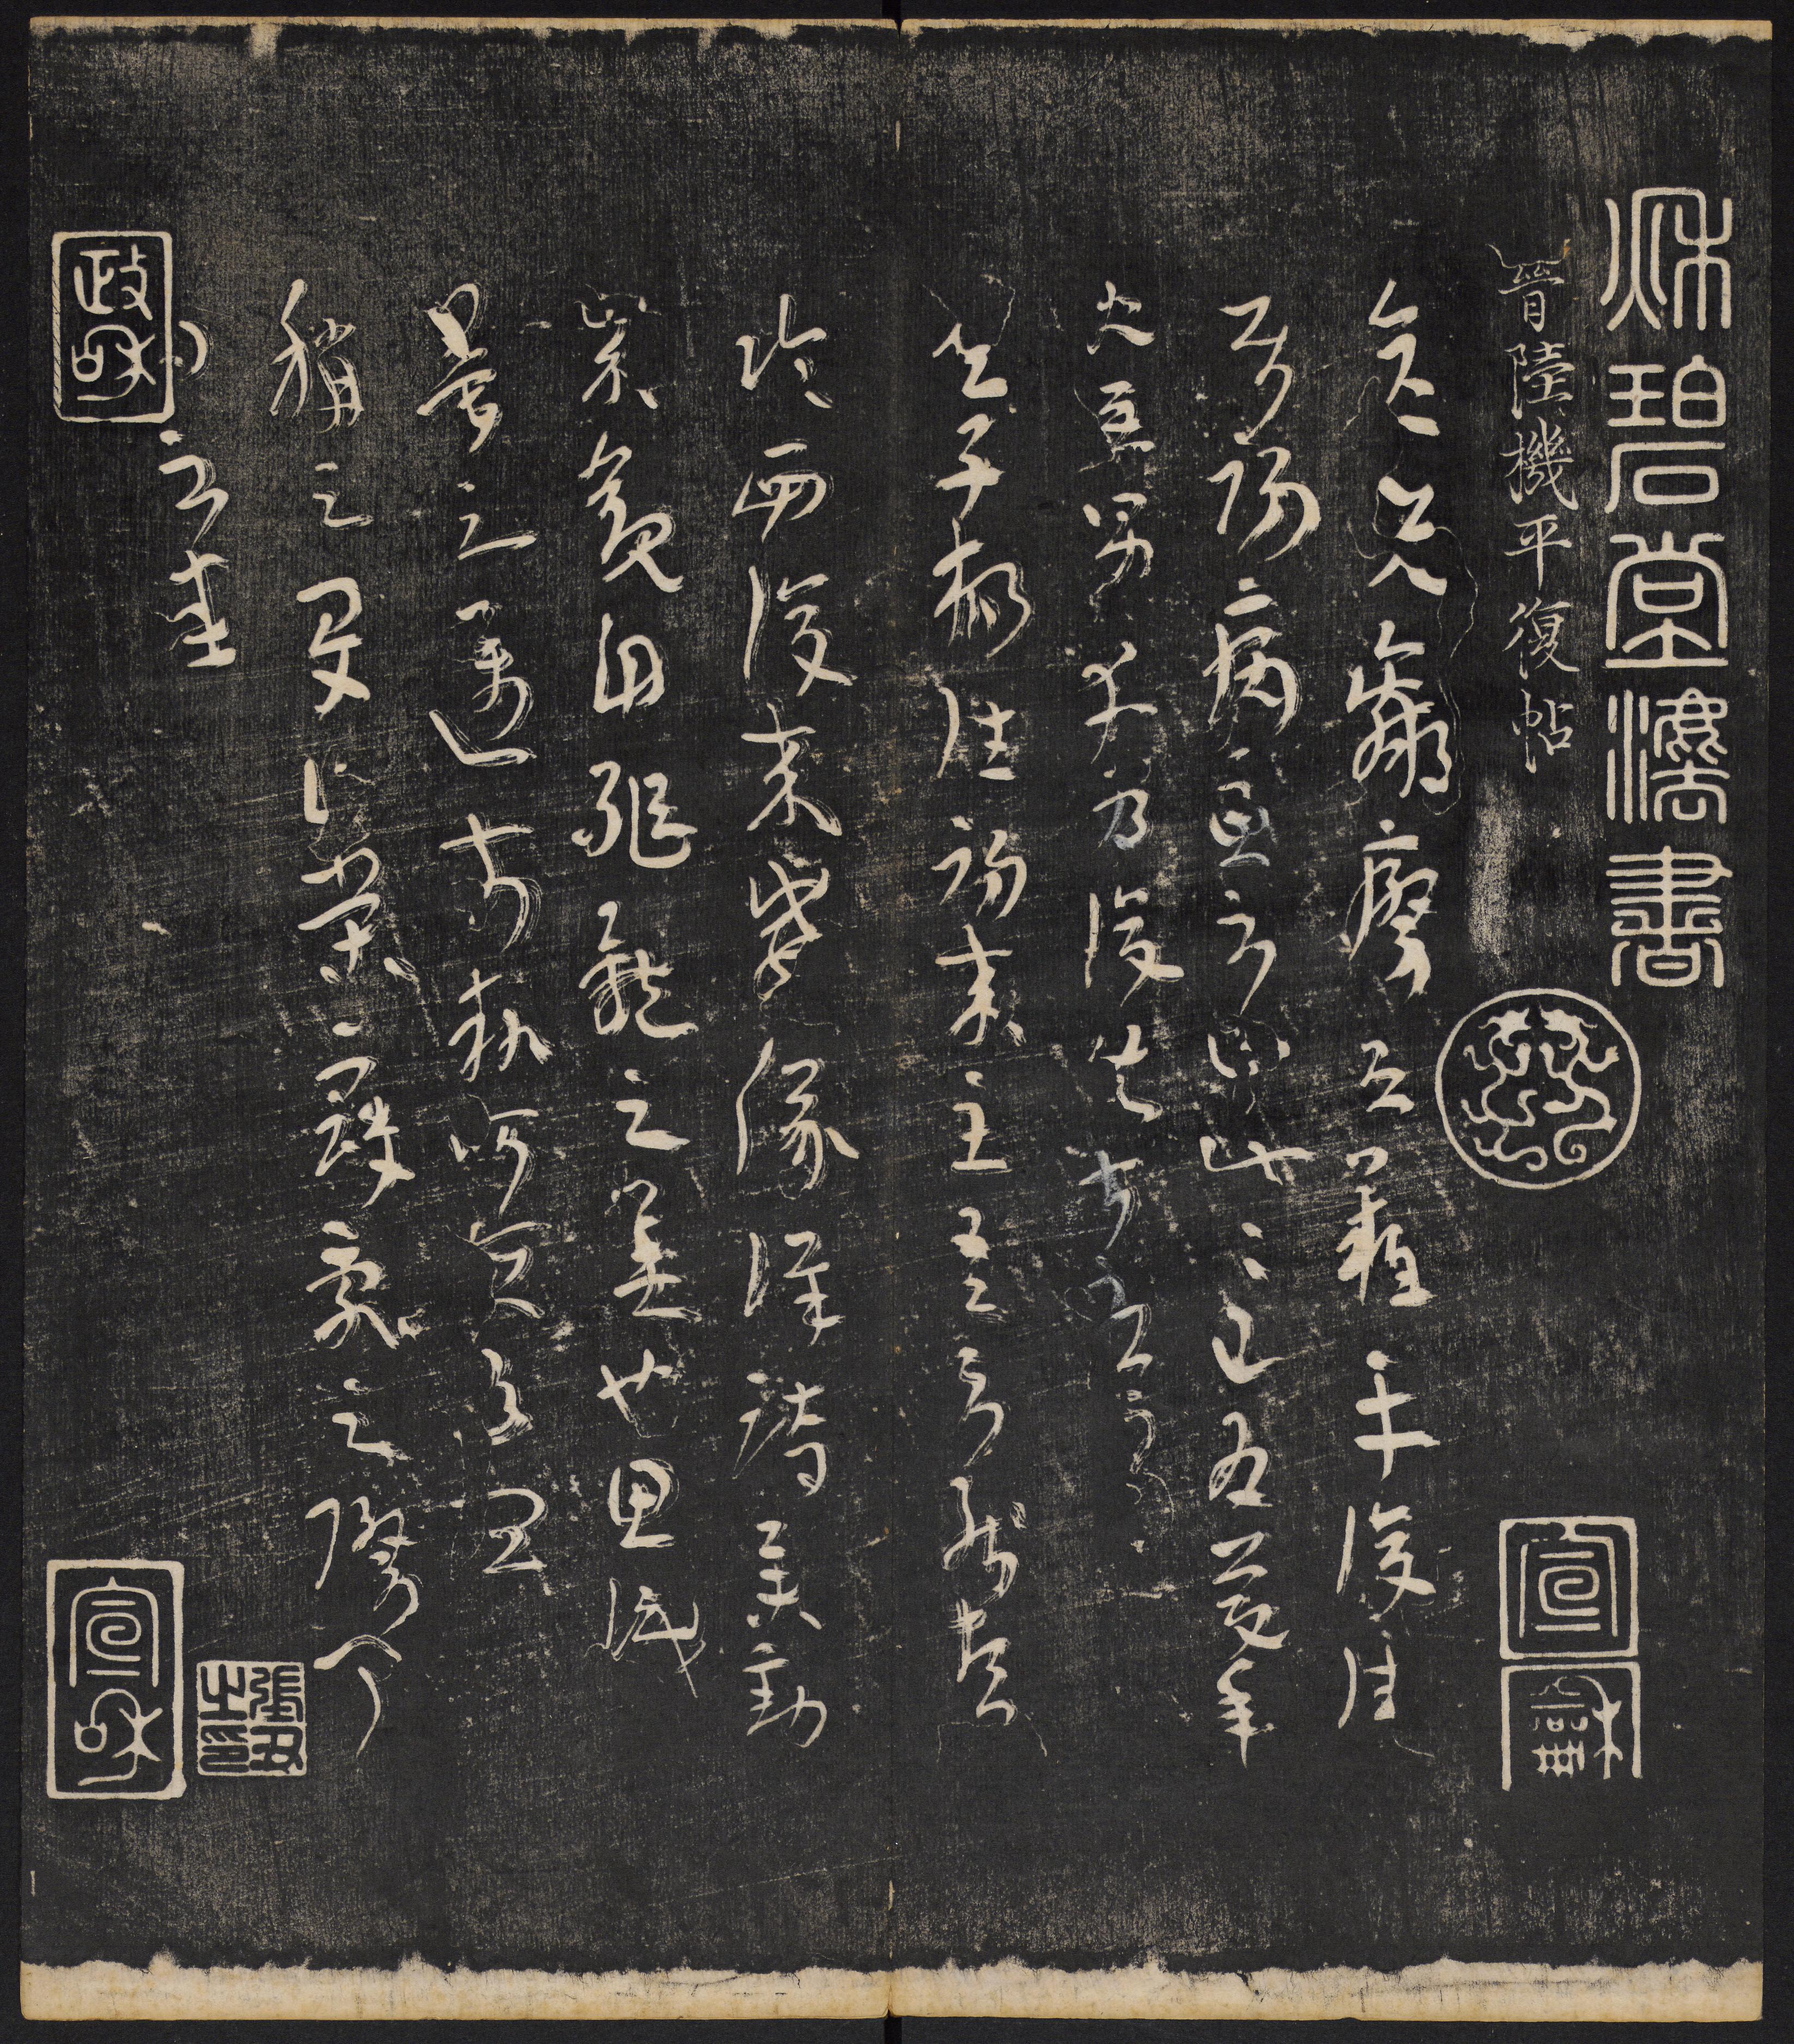 秋碧堂法書
晉陸機平復帖
彥先羸瘵恐難平復往
屬初病慮不止此此已為慶承
使唯男幸為復失前憂耳
子楊往初來主吾不能盡
臨西復來威儀詳跱舉動
成觀自軀體之美也思識
量之邁前執所恒有宜
稱之夏伯榮寇亂之際聞
問不悉
宣龢
政和
宣和
張丑之印